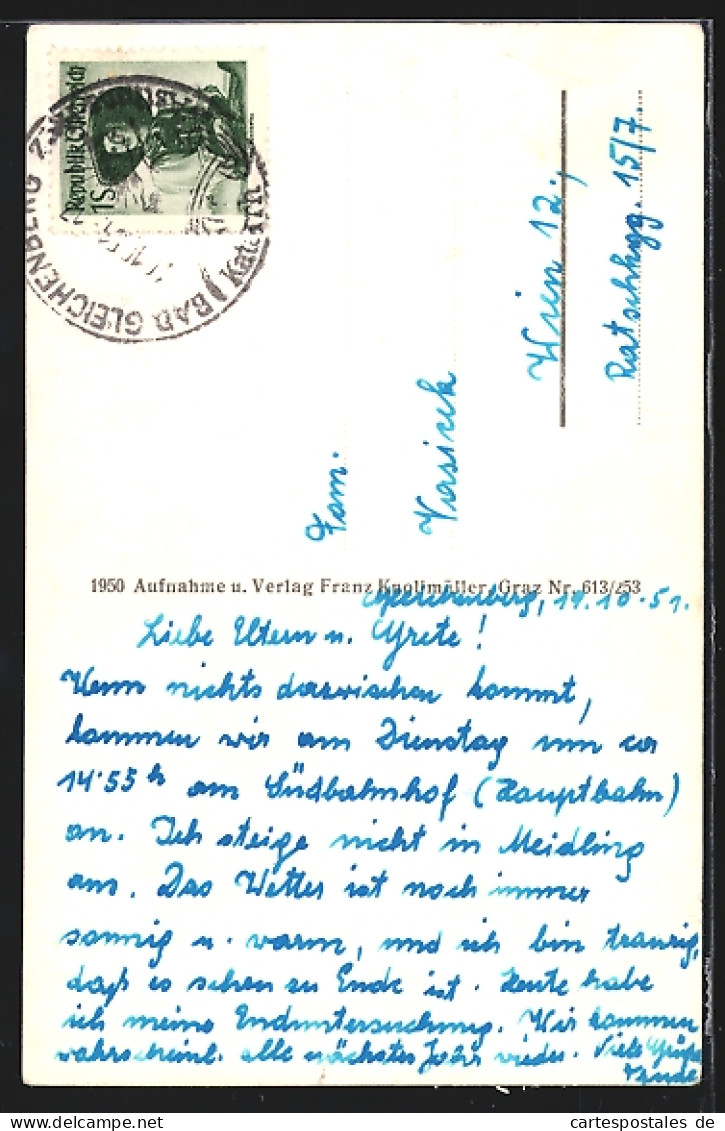 Republik Österreich
1S
BAD GLEICHENBERG
Wien 12.,
Ratschkyg. 15/7.
Fam.
1950 Aufnahme u. Verlag Franz Knollmüller, Graz Nr. 613/253
Gleichenberg, 19.10.51.
Liebe Eltern u. Grete!
Wenn nichts dazwischen kommt,
kommen wir am Dienstag um ca
14·55 h am Südbahnhof (Hauptbahn)
an. Ich steige nicht in Meidling
aus. Das Wetter ist noch immer
sonnig u. warm, und ich bin traurig,
daß es schon zu Ende ist. Heute habe
ich meine Enduntersuchung. Wir kommen
wahrscheinl. alle nächstes Jahr wieder. Viele Grüße
cartespostales.de
cartespostales.de